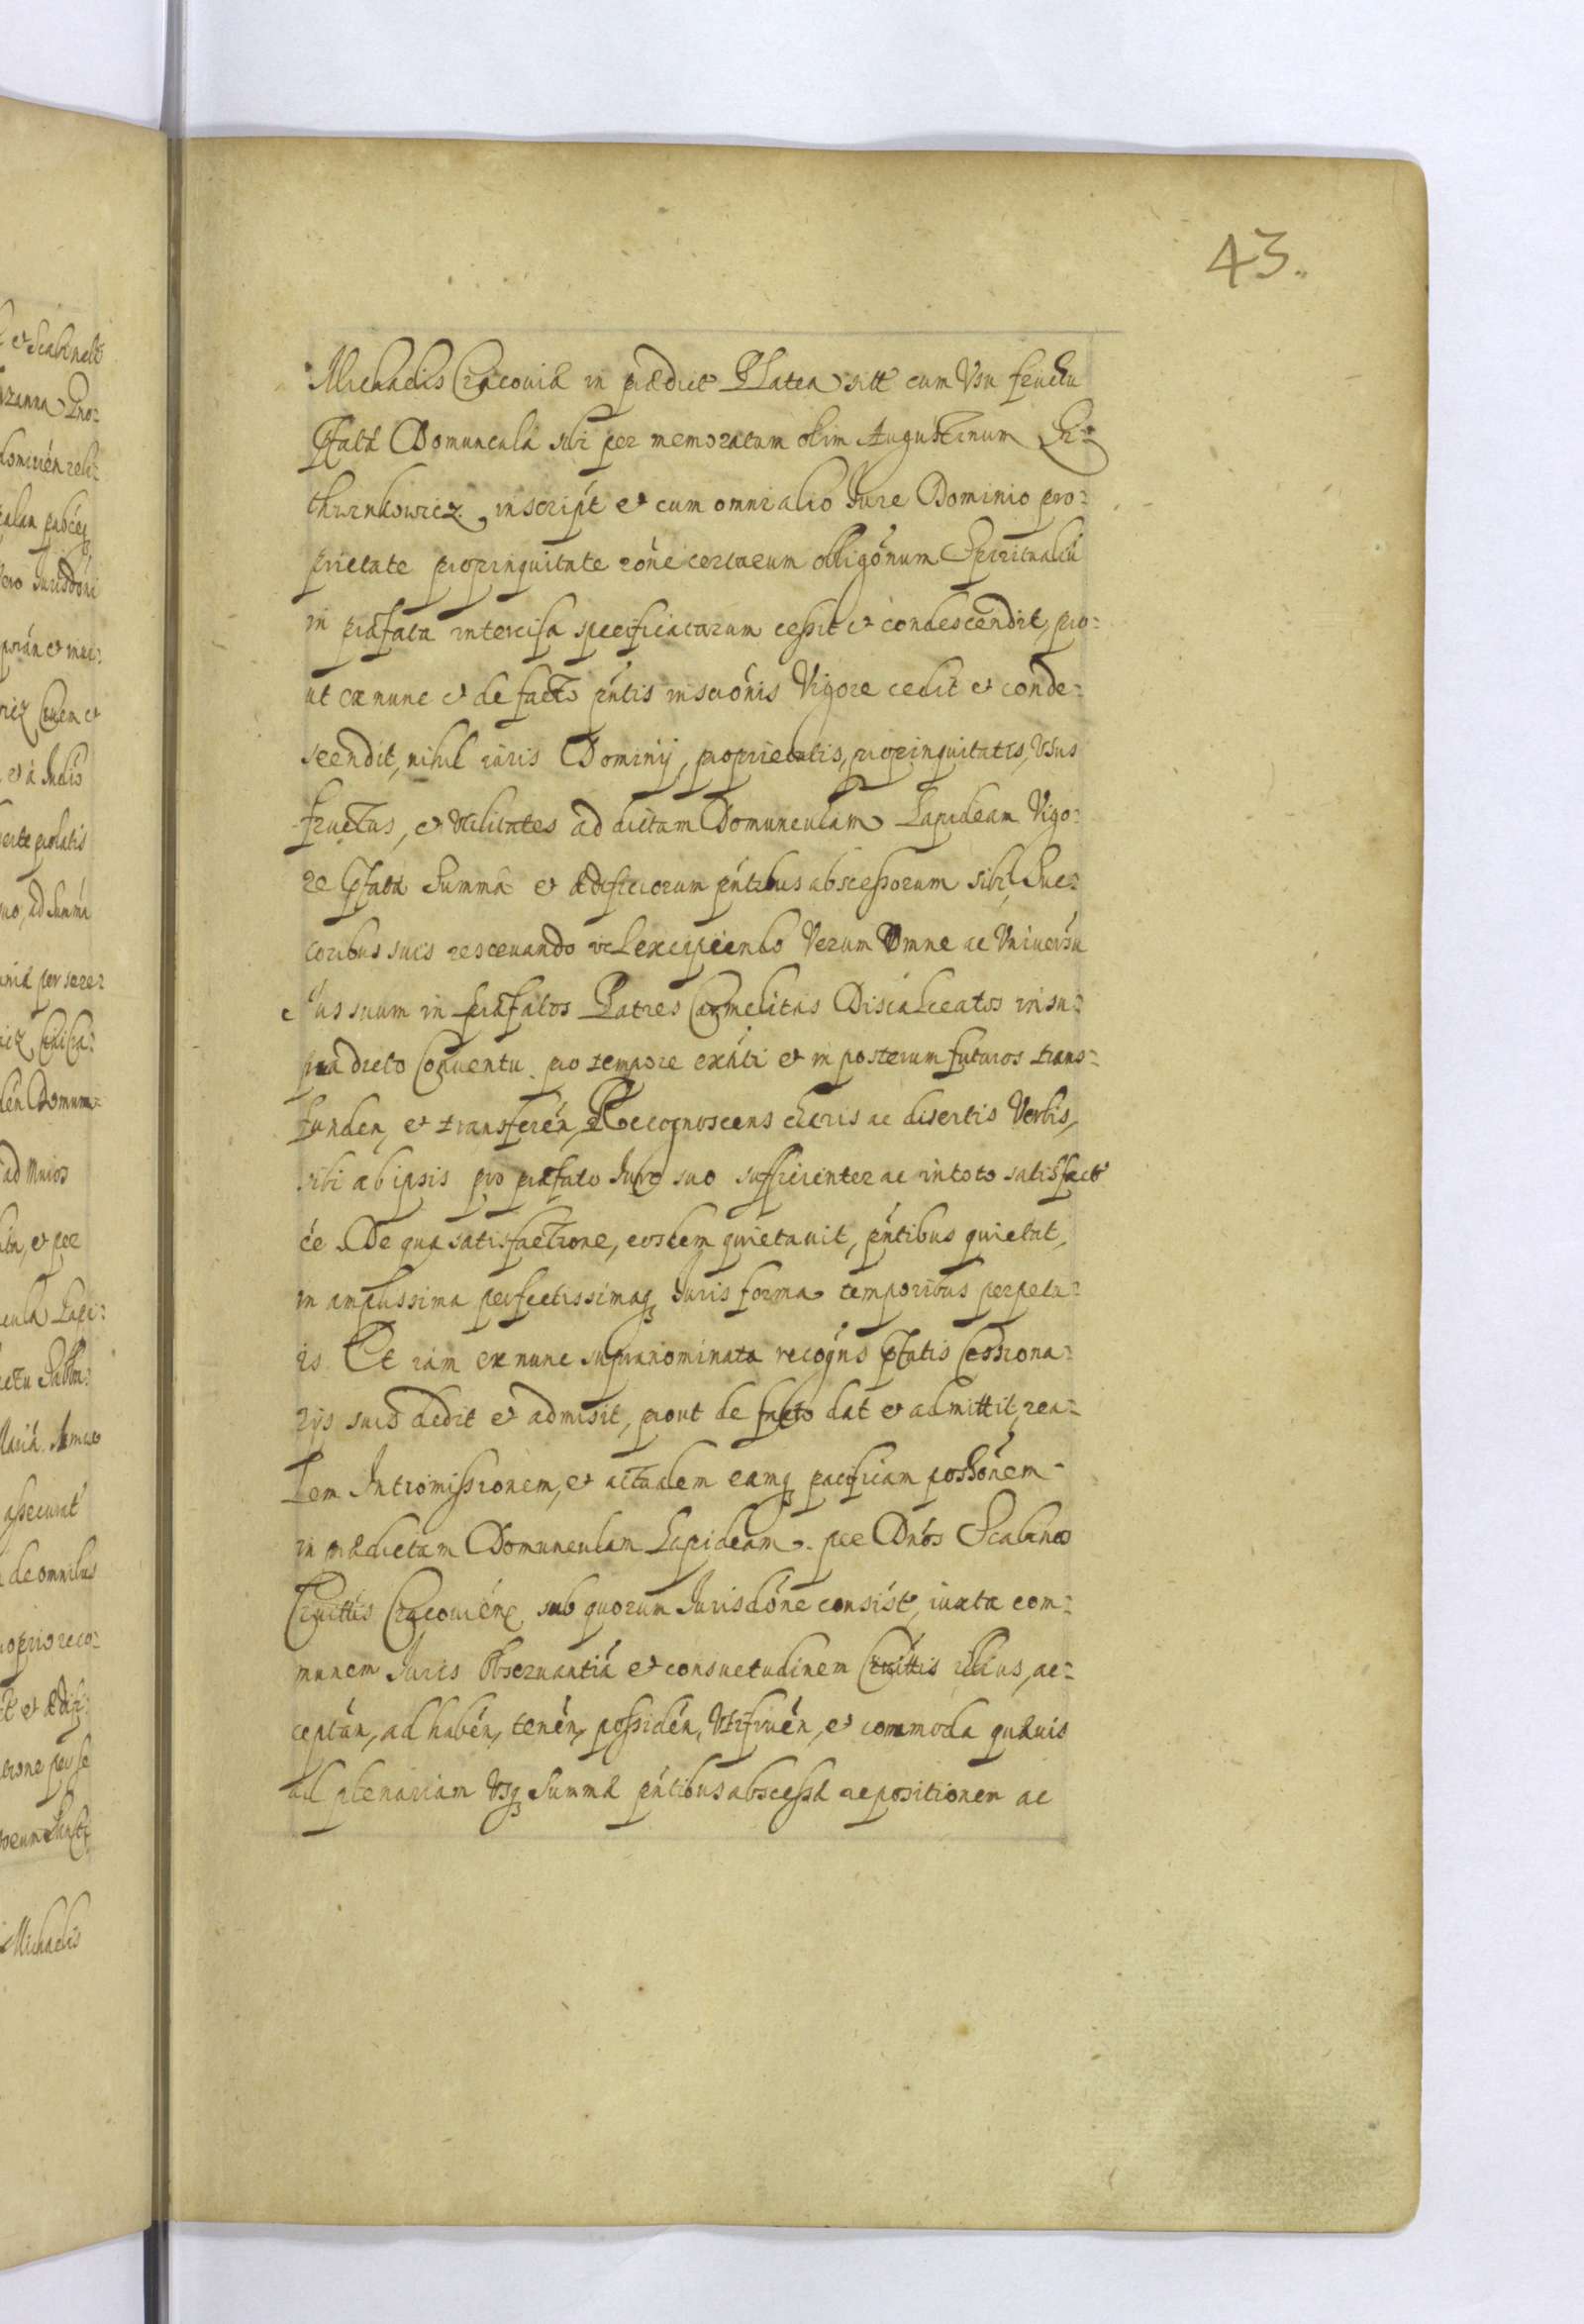 43.
Michaelis Cracoviæ in prædict Platea sitt cum Vsu fructu
Pfatæ Domunculæ sibi per memoratum olim Augustinum Chi=
thrinkowicz inscript et cum omni alio Iure Dominio pro=
prietate propinquitate rõne certarum obligõnum Spiritualiũ
in præfata intercisa specificatarum cessit et condescendit, pro=
ut ex nunc et de facto pñtis inscriõnis Vigore cedit et conde=
scendit, nihil iuris Dominij, proprietatis, propinquitatis, Vsus
fructus, et vtilitates ad dictam Domunculam Lapideam Vigo=
re Pfatæ Summæ et ædificiorum pñtibus abscessorum sibi, Suc=
coribus suis reservando vel excipiendo Verum Omne ac Vniversũ
Ius suum in præfatos Patres Carmelitas Discalceatos in su=
pra dicto Conventu pro tempore exñti et in posterum futuros trans=
funden, et transferén, Recognoscens claris ac disertis Verbis,
sibi ab ipsis pro præfato Iure suo sufficienter ac in toto satisfact
ee De qua satisfactione, eosdem quietavit, pñtibus quietat,
in amplissima perfectissimaq Iuris forma temporibus perpetu=
is. Et iam ex nunc supranominata recogñs Pfatis Cessiona=
rijs suis dedit et admisit, prout de facto dat et admittit, rea=
lem Intromissionem, et actualem eamq pacificam possõnem
in prædictam Domunculam Lapideam per Dños Scabinos
Civittis Cracovieñ sub quorum Iurisdõne consist, iuxta com=
munem Iuris Observantiã et consuetudinem Civittis illius, ac=
ceptan, ad habén, tenén, possidén, Vtifruén, et commoda quævis
ad plenariam Vsq Summæ pñtibus abscessæ repositionem ac